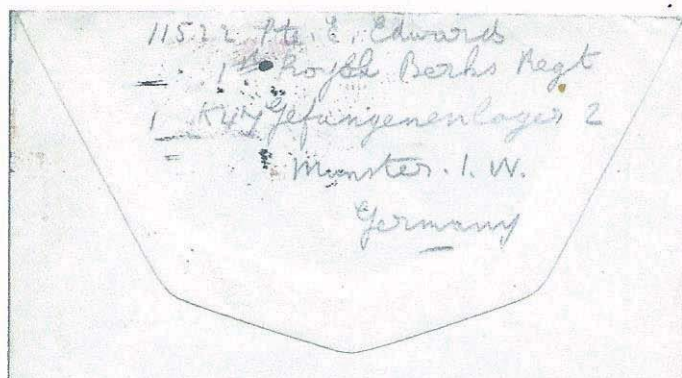 11522 Pte. E. Edwards
1st Royal Berks Regt
1 K47 Gefangenenlager 2
Munster. I. W.
Germany